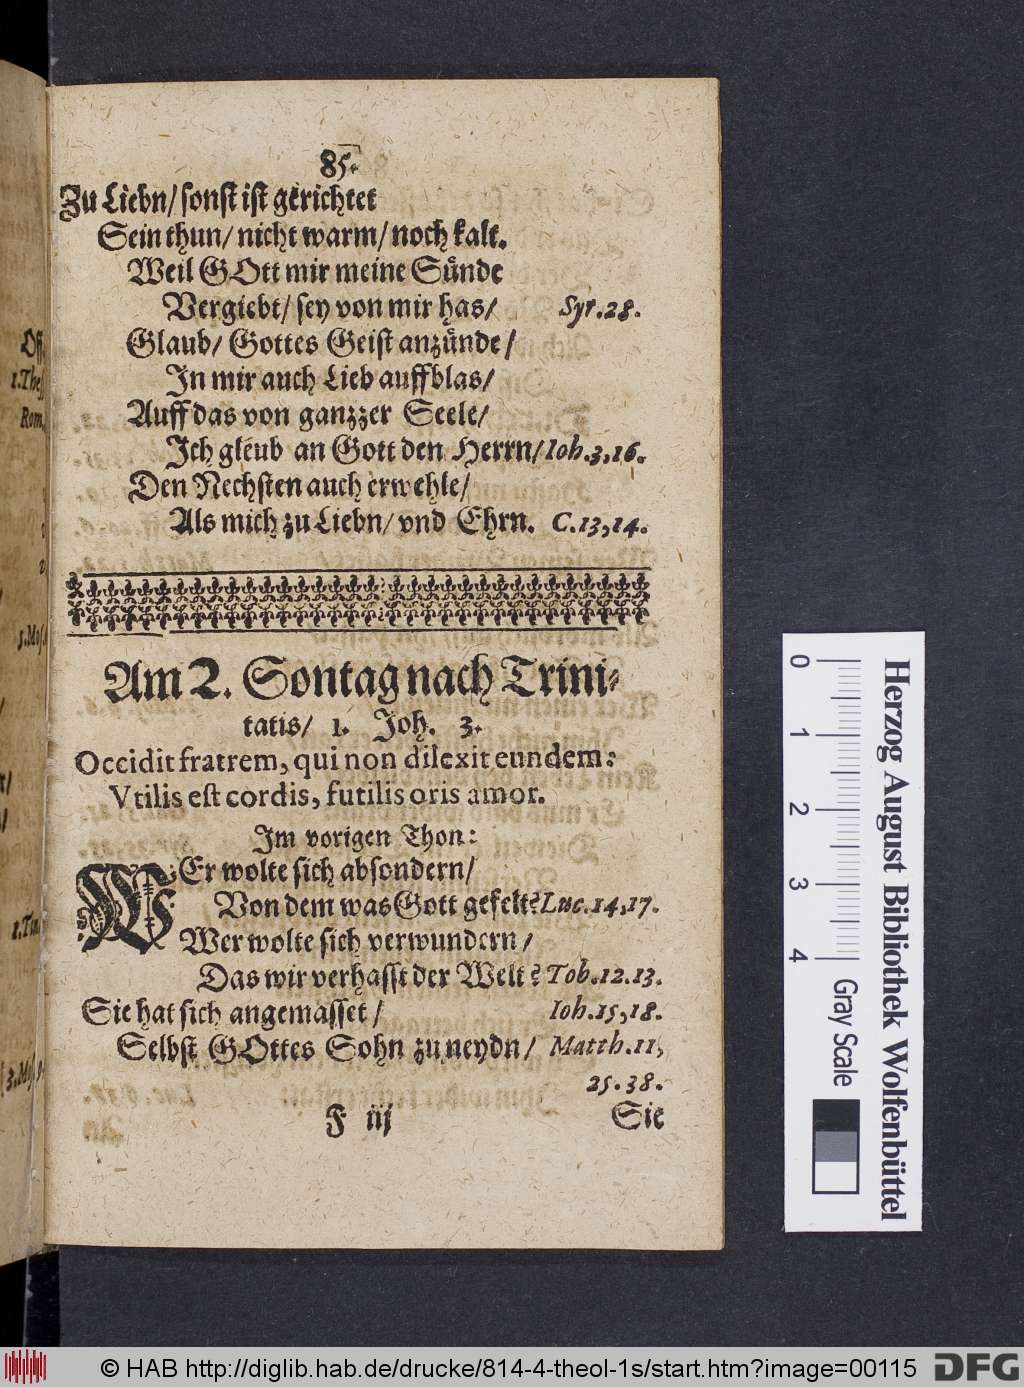 85.
Zu Liebn/ sonst ist gerichtet
Sein thun/ nicht warm/ noch kalt.
Weil GOtt mir meine Sünde
Vergiebt/ sey von mir has/ Syr. 28.
Glaub/ Gottes Geist anzünde/
In mir auch Lieb auffblas/
Auff das von ganzzer Seele/
Ich gleub an Gott den Herrn/ Ioh. 3, 16.
Den Nechsten auch erwehle/
Als mich zu Liebn/ vnd Ehrn. C. 13, 14.
Am 2. Sontag nach Trini-
tatis/ 1. Joh. 3.
Occidit fratrem, qui non dilexit eundem:
Vtilis est cordis, futilis oris amor.
Im vorigen Thon:
WEr wolte sich absondern/
Von dem was Gott gefelt? Luc. 14, 17.
Wer wolte sich verwundern/
Das wir verhasst der Welt? Tob. 12. 13.
Sie hat sich angemasset/ Ioh. 15, 18.
Selbst GOttes Sohn zu neydn/ Matth. 11,
25. 38.
F iij Sie
Off.
1. Thess
Rom.
5. Mos.
1. Tim
3. Mos. 9.
0 1 2 3 4
Gray Scale
Herzog August Bibliothek Wolfenbüttel
© HAB http://diglib.hab.de/drucke/814-4-theol-1s/start.htm?image=00115
DFG